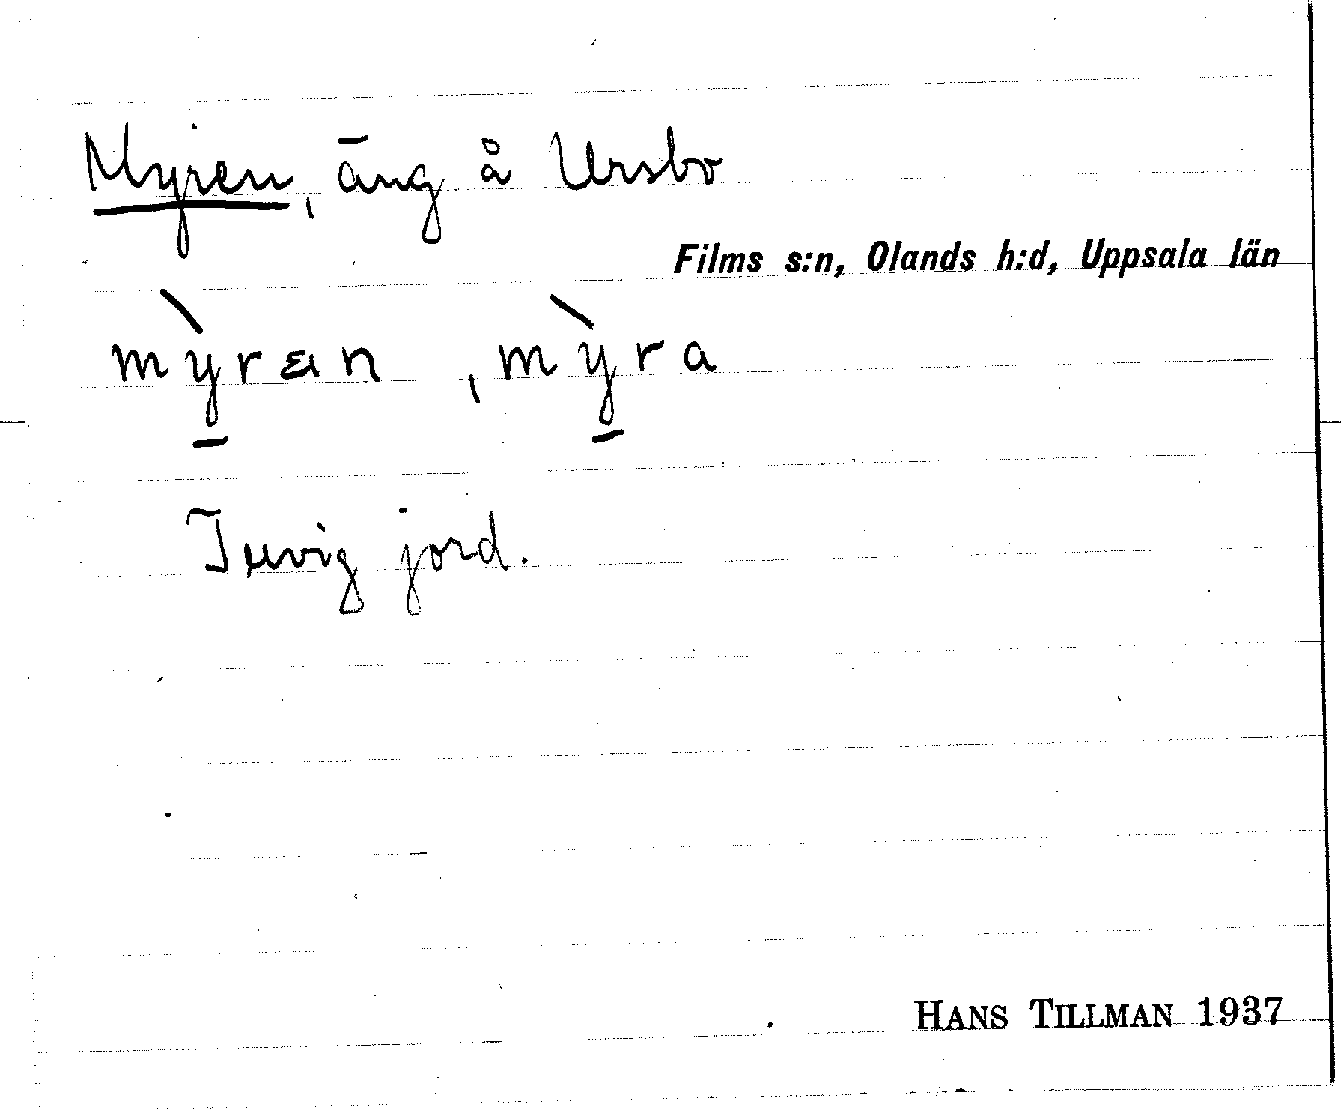 Myren, äng å Ursbo
Films s:n, Olands h:d, Uppsala län
mỳ̱ræn , mỳ̱ra
Tuvig jord.
HANS TILLMAN 1937